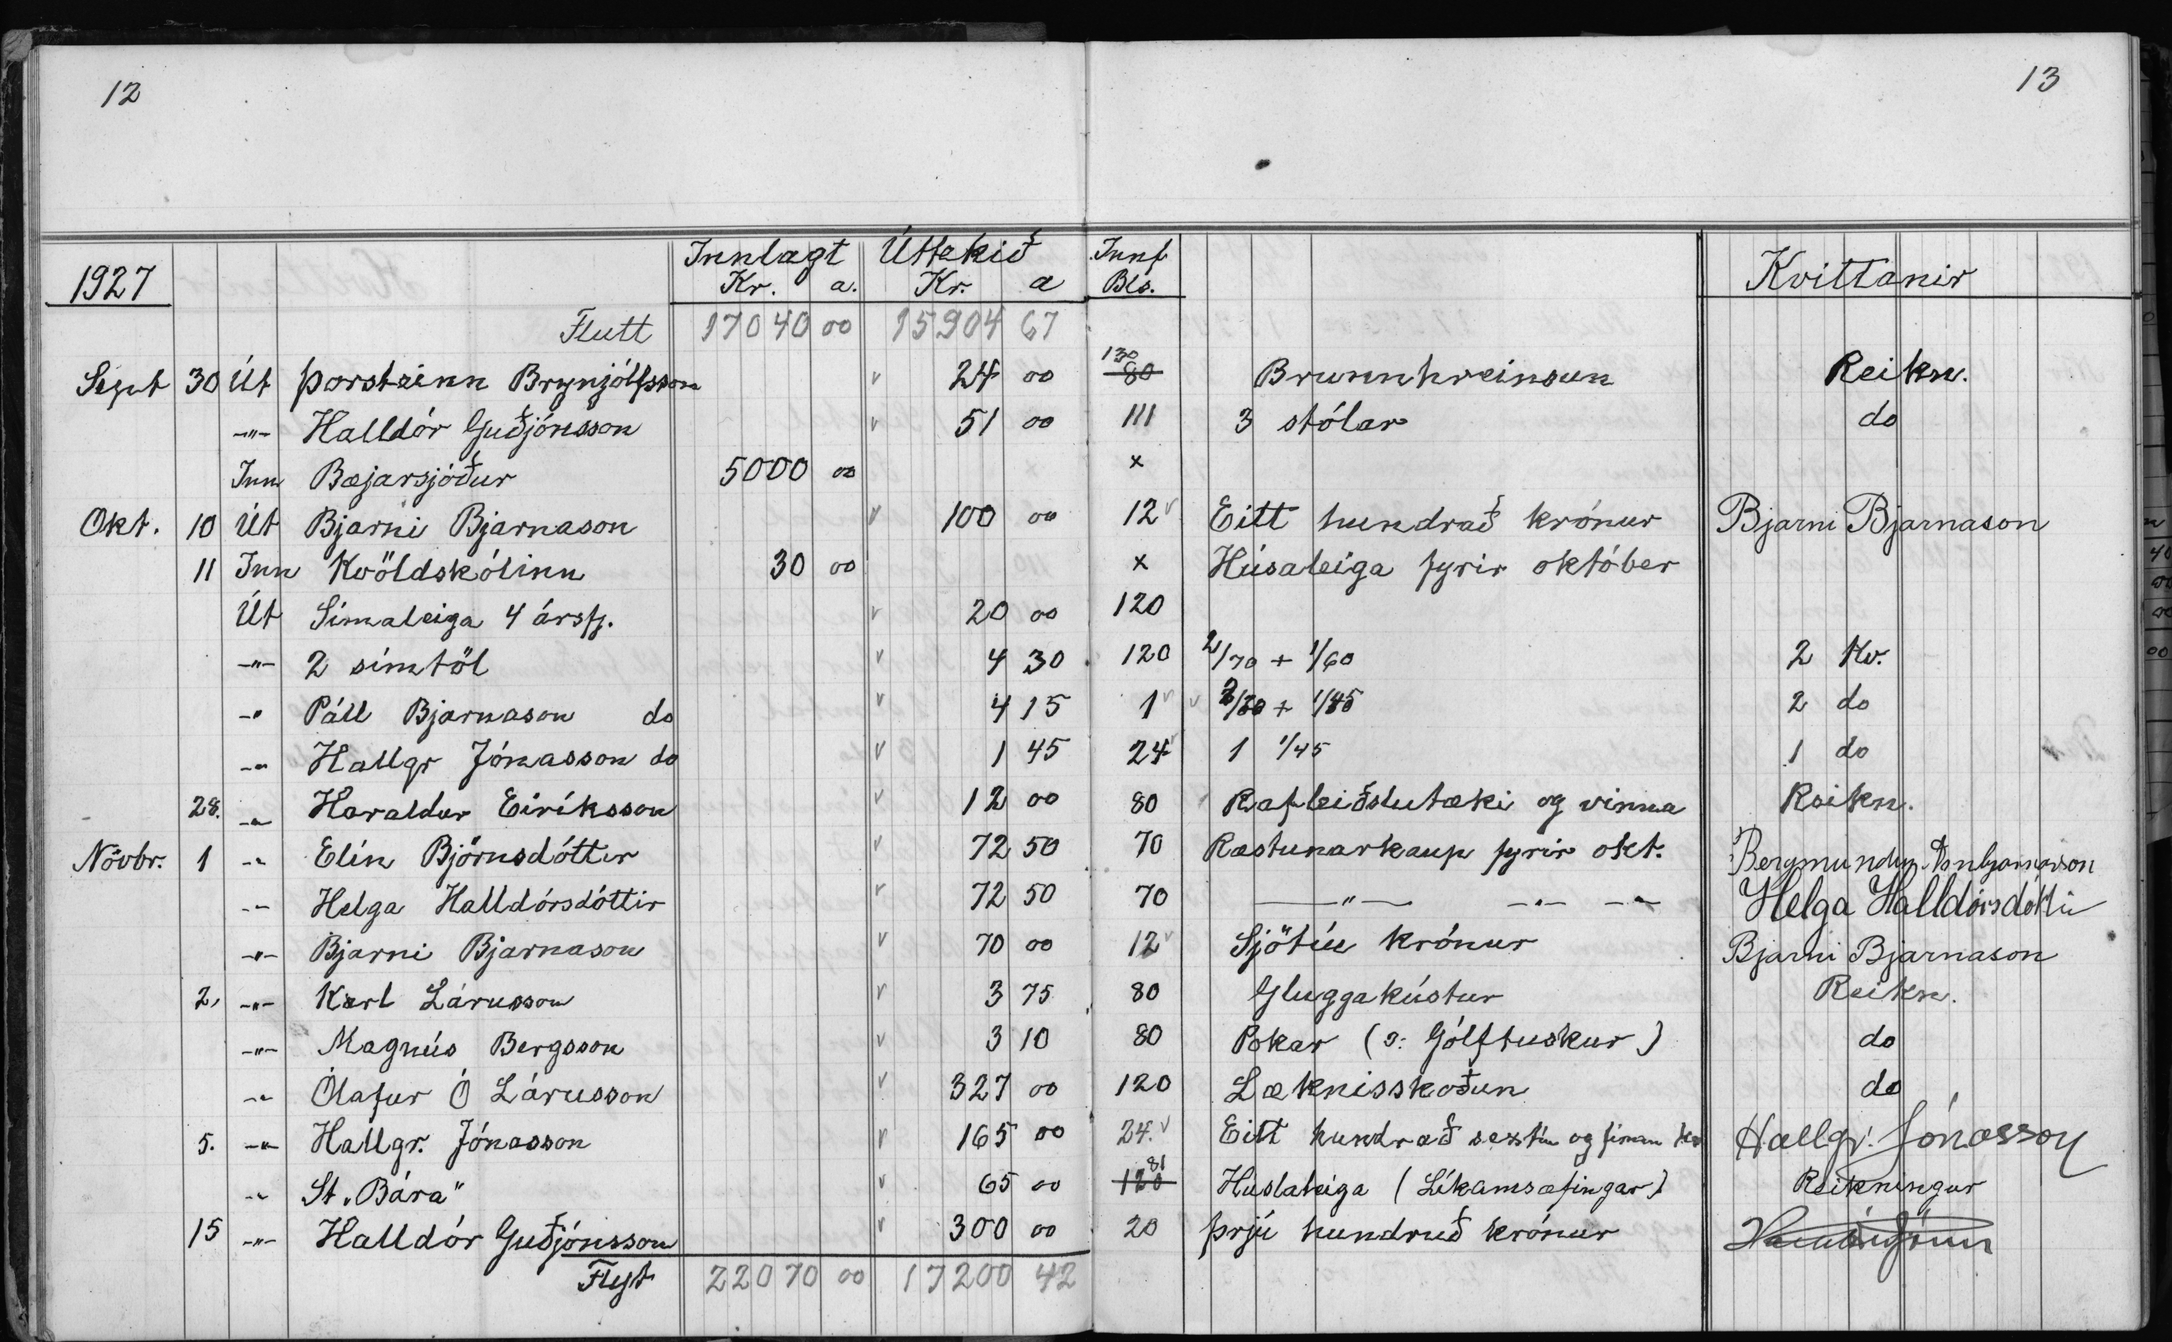 12
13
1927 Innlagt Úttekið Innf. Kvittanir
Kr. a. Kr. a Bls.
Flutt 17040 00 15904 67
Sept 30 Út Þorsteinn Brynjólfsson v 24 00 130 80 Brunnhreinsun Reikn.
-"- Halldór Guðjónsson v 51 00 111 3 stólar do
Inn Bæjarsjóður 5000 00 x
Okt. 10 Út Bjarni Bjarnason v 100 00 12 v Eitt hundrað krónur Bjarni Bjarnason
11 Inn Kvöldskólinn 30 00 x Húsaleiga fyrir október
Út Símaleiga 4 ársfj. v 20 00 120
-"- 2 símtöl v 4 30 120 2/70 + 1/60 2 Kv.
-" Páll Bjarnason do v 4 15 1 v v + 2 do
-"- Hallgr Jónasson do v 1 45 24 1 1/45 1 do
28. -"- Haraldur Eiríksson v 12 00 80 Rafleiðslutæki og vinna Reikn.
Nóvbr. 1 -"- Elín Björnsdóttir v 72 50 70 Ræstunarkaup fyrir okt. Bergmundur Arnbjarnarson
-"- Helga Halldórsdóttir v 72 50 70 -"- -"- -"- Helga Halldórsdóttir
-"- Bjarni Bjarnason v 70 00 12 v Sjötíu krónur Bjarni Bjarnason
2, -"- Karl Lárusson v 3 75 80 Gluggakústur Reikn.
-"- Magnús Bergsson v 3 10 80 Pokar (ɔ: Gólftuskur) do
-"- Ólafur Ó Lárusson v 327 00 120 Læknisskoðun do
5. -"- Hallgr. Jónasson v 165 00 24. v Eitt hundrað sextíu og fimm kr Hallgr. Jónasson
-"- St. „Bára" v 65 00 81 120 Huslaleiga (Líkamsæfingar) Reikningur
15 -"- Halldór Guðjónsson v 300 00 20 Þrjú hundruð krónur
Flyt 22070 00 17200 42